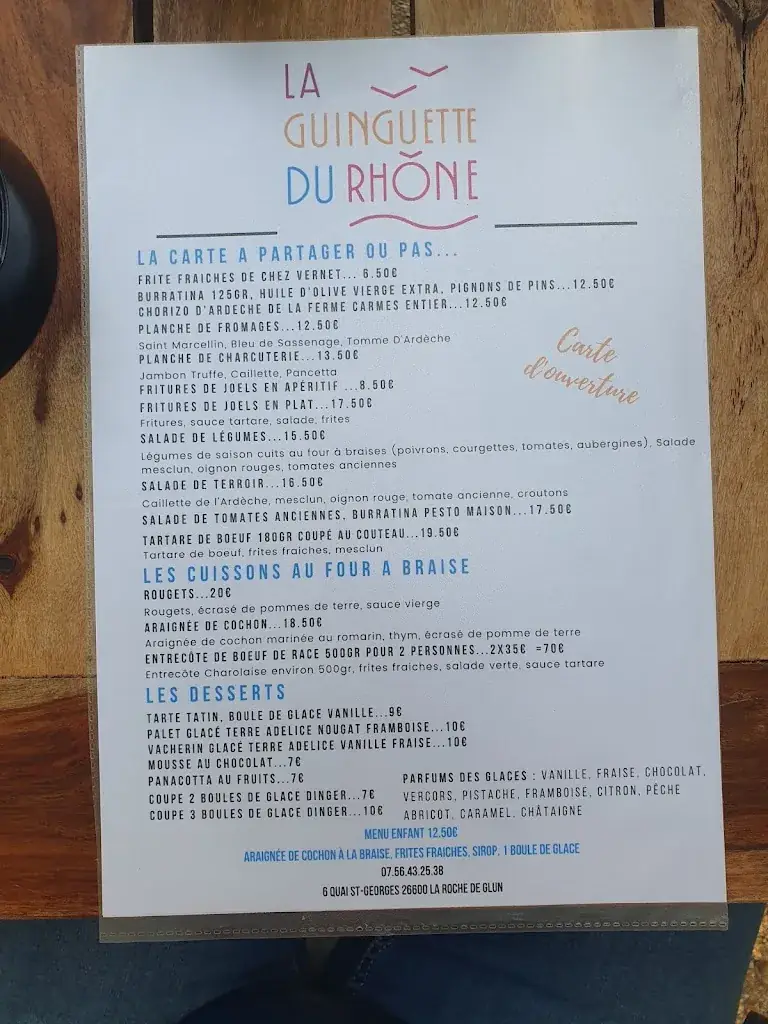 LA
GUINGUETTE
DU RHÔNE
LA CARTE A PARTAGER OU PAS...
FRITE FRAICHES DE CHEZ VERNET... 6.50€
BURRATINA 125GR, HUILE D'OLIVE VIERGE EXTRA, PIGNONS DE PINS...12.50€
CHORIZO D'ARDECHE DE LA FERME CARMES ENTIER...12.50€
PLANCHE DE FROMAGES...12.50€
Saint Marcellin, Bleu de Sassenage, Tomme D'Ardèche
PLANCHE DE CHARCUTERIE...13.50€
Jambon Truffe, Caillette, Pancetta
Carte
d'ouverture
FRITURES DE JOELS EN APÉRITIF ...8.50€
FRITURES DE JOELS EN PLAT...17.50€
Fritures, sauce tartare, salade, frites
SALADE DE LÉGUMES...15.50€
Légumes de saison cuits au four à braises (poivrons, courgettes, tomates, aubergines), Salade
mesclun, oignon rouges, tomates anciennes
SALADE DE TERROIR...16.50€
Caillette de l'Ardèche, mesclun, oignon rouge, tomate ancienne, croutons
SALADE DE TOMATES ANCIENNES, BURRATINA PESTO MAISON...17.50€
TARTARE DE BOEUF 180GR COUPÉ AU COUTEAU...19.50€
Tartare de boeuf, frites fraiches, mesclun
LES CUISSONS AU FOUR A BRAISE
ROUGETS...20€
Rougets, écrasé de pommes de terre, sauce vierge
ARAIGNÉE DE COCHON...18.50€
Araignée de cochon marinée au romarin, thym, écrasé de pomme de terre
ENTRECÔTE DE BOEUF DE RACE 500GR POUR 2 PERSONNES...2X35€ =70€
Entrecôte Charolaise environ 500gr, frites fraiches, salade verte, sauce tartare
LES DESSERTS
TARTE TATIN, BOULE DE GLACE VANILLE...9€
PALET GLACÉ TERRE ADELICE NOUGAT FRAMBOISE...10€
VACHERIN GLACÉ TERRE ADELICE VANILLE FRAISE...10€
MOUSSE AU CHOCOLAT...7€
PANACOTTA AU FRUITS...7€
COUPE 2 BOULES DE GLACE DINGER...7€
COUPE 3 BOULES DE GLACE DINGER...10€
PARFUMS DES GLACES : VANILLE, FRAISE, CHOCOLAT,
VERCORS, PISTACHE, FRAMBOISE, CITRON, PÊCHE
ABRICOT, CARAMEL, CHÂTAIGNE
MENU ENFANT 12.50€
ARAIGNÉE DE COCHON À LA BRAISE, FRITES FRAICHES, SIROP, 1 BOULE DE GLACE
07.56.43.25.38
6 QUAI ST-GEORGES 26600 LA ROCHE DE GLUN